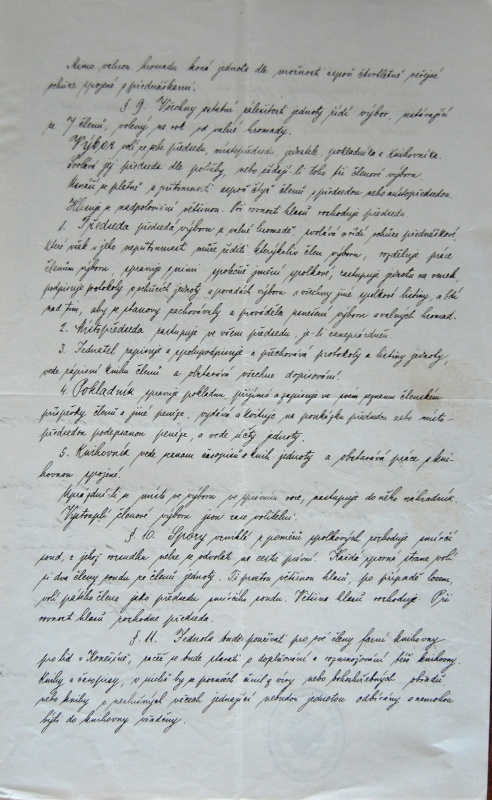 Mimo valnou hromadu koná jednota dle možnosti aspoň čtvrtletně veřejné
schůze spojené s přednáškami.
§ 9. Všechny ostatní záležitosti jednoty řídí výbor, sestávající
ze 7 členů, volený na rok od valné hromady.
Výbor volí ze sebe předsedu, místopředsedu, jednatele, pokladníka a knihovníka.
Svolává jej předseda dle potřeby, nebo žádají-li toho tři členové výboru.
Usnáší se platně za přítomnosti aspoň čtyř členů s předsedou nebo místopředsedou.
Hlasuje se nadpoloviční většinou. Při rovnosti hlasů rozhoduje předseda.
1. Předseda předsedá výboru a valné hromadě, svolává a řídí schůze přednáškové,
které však v jeho nepřítomnosti může říditi kterýkoliv člen výboru, rozděluje práce
členům výboru, spravuje s nimi společné jmění spolkové, zastupuje jednotu na venek,
podpisuje protokoly o schůzích jednoty a poradách výboru a všechny jiné spolkové listiny, a bdí
nad tím, aby se stanovy zachovávaly a prováděla usnešení výboru a valných hromad.
2. Místopředseda zastupuje ve všem předsedu, je-li zaneprázdněn.
3. Jednatel zapisuje a spolupodpisuje a přechovává protokoly a listiny jednoty,
vede zapisní knihu členů a obstarává všechno dopisování.
4. Pokladník spravuje pokladnu, přijímá a zapisuje ve svém seznamu členském
příspěvky členů a jiné peníze, vydává a kvituje na poukázku předsedou nebo místo-
předsedou podepsanou peníze, a vede účty jednoty.
5. Knihovník vede seznam časopisů a knih jednoty a obstarává práce s kni-
hovnou spojené.
Uprázdní-li se místo ve výboru ve správním roce, nastupuje do něho náhradník.
Vystouplí členové výboru jsou zase volitelní.
§ 10. Spory vzniklé z poměrů spolkových rozhoduje smírčí
soud, z jehož rozsudku nelze se odvolati na cestu právní. Každá sporná strana volí
si dva členy soudu ze členů jednoty. Ti pak většinou hlasů, po případě losem,
volí pátého člena jako předsedu smírčího soudu. Většina hlasů rozhoduje. Při
rovnosti hlasů rozhodne předseda.
§ 11. Jednota bude používati pro své členy farní knihovny
pro lid v Konešíně, začež se bude starati o doplňování a rozmnožování této knihovny.
Knihy a časopisy, v nichž by se posměch činil z víry nebo bohoslužebných obřadů
nebo knihy o neslušných věcech jednající nebudou jednotou odbírány a nemohou
býti do knihovny vřaděny.